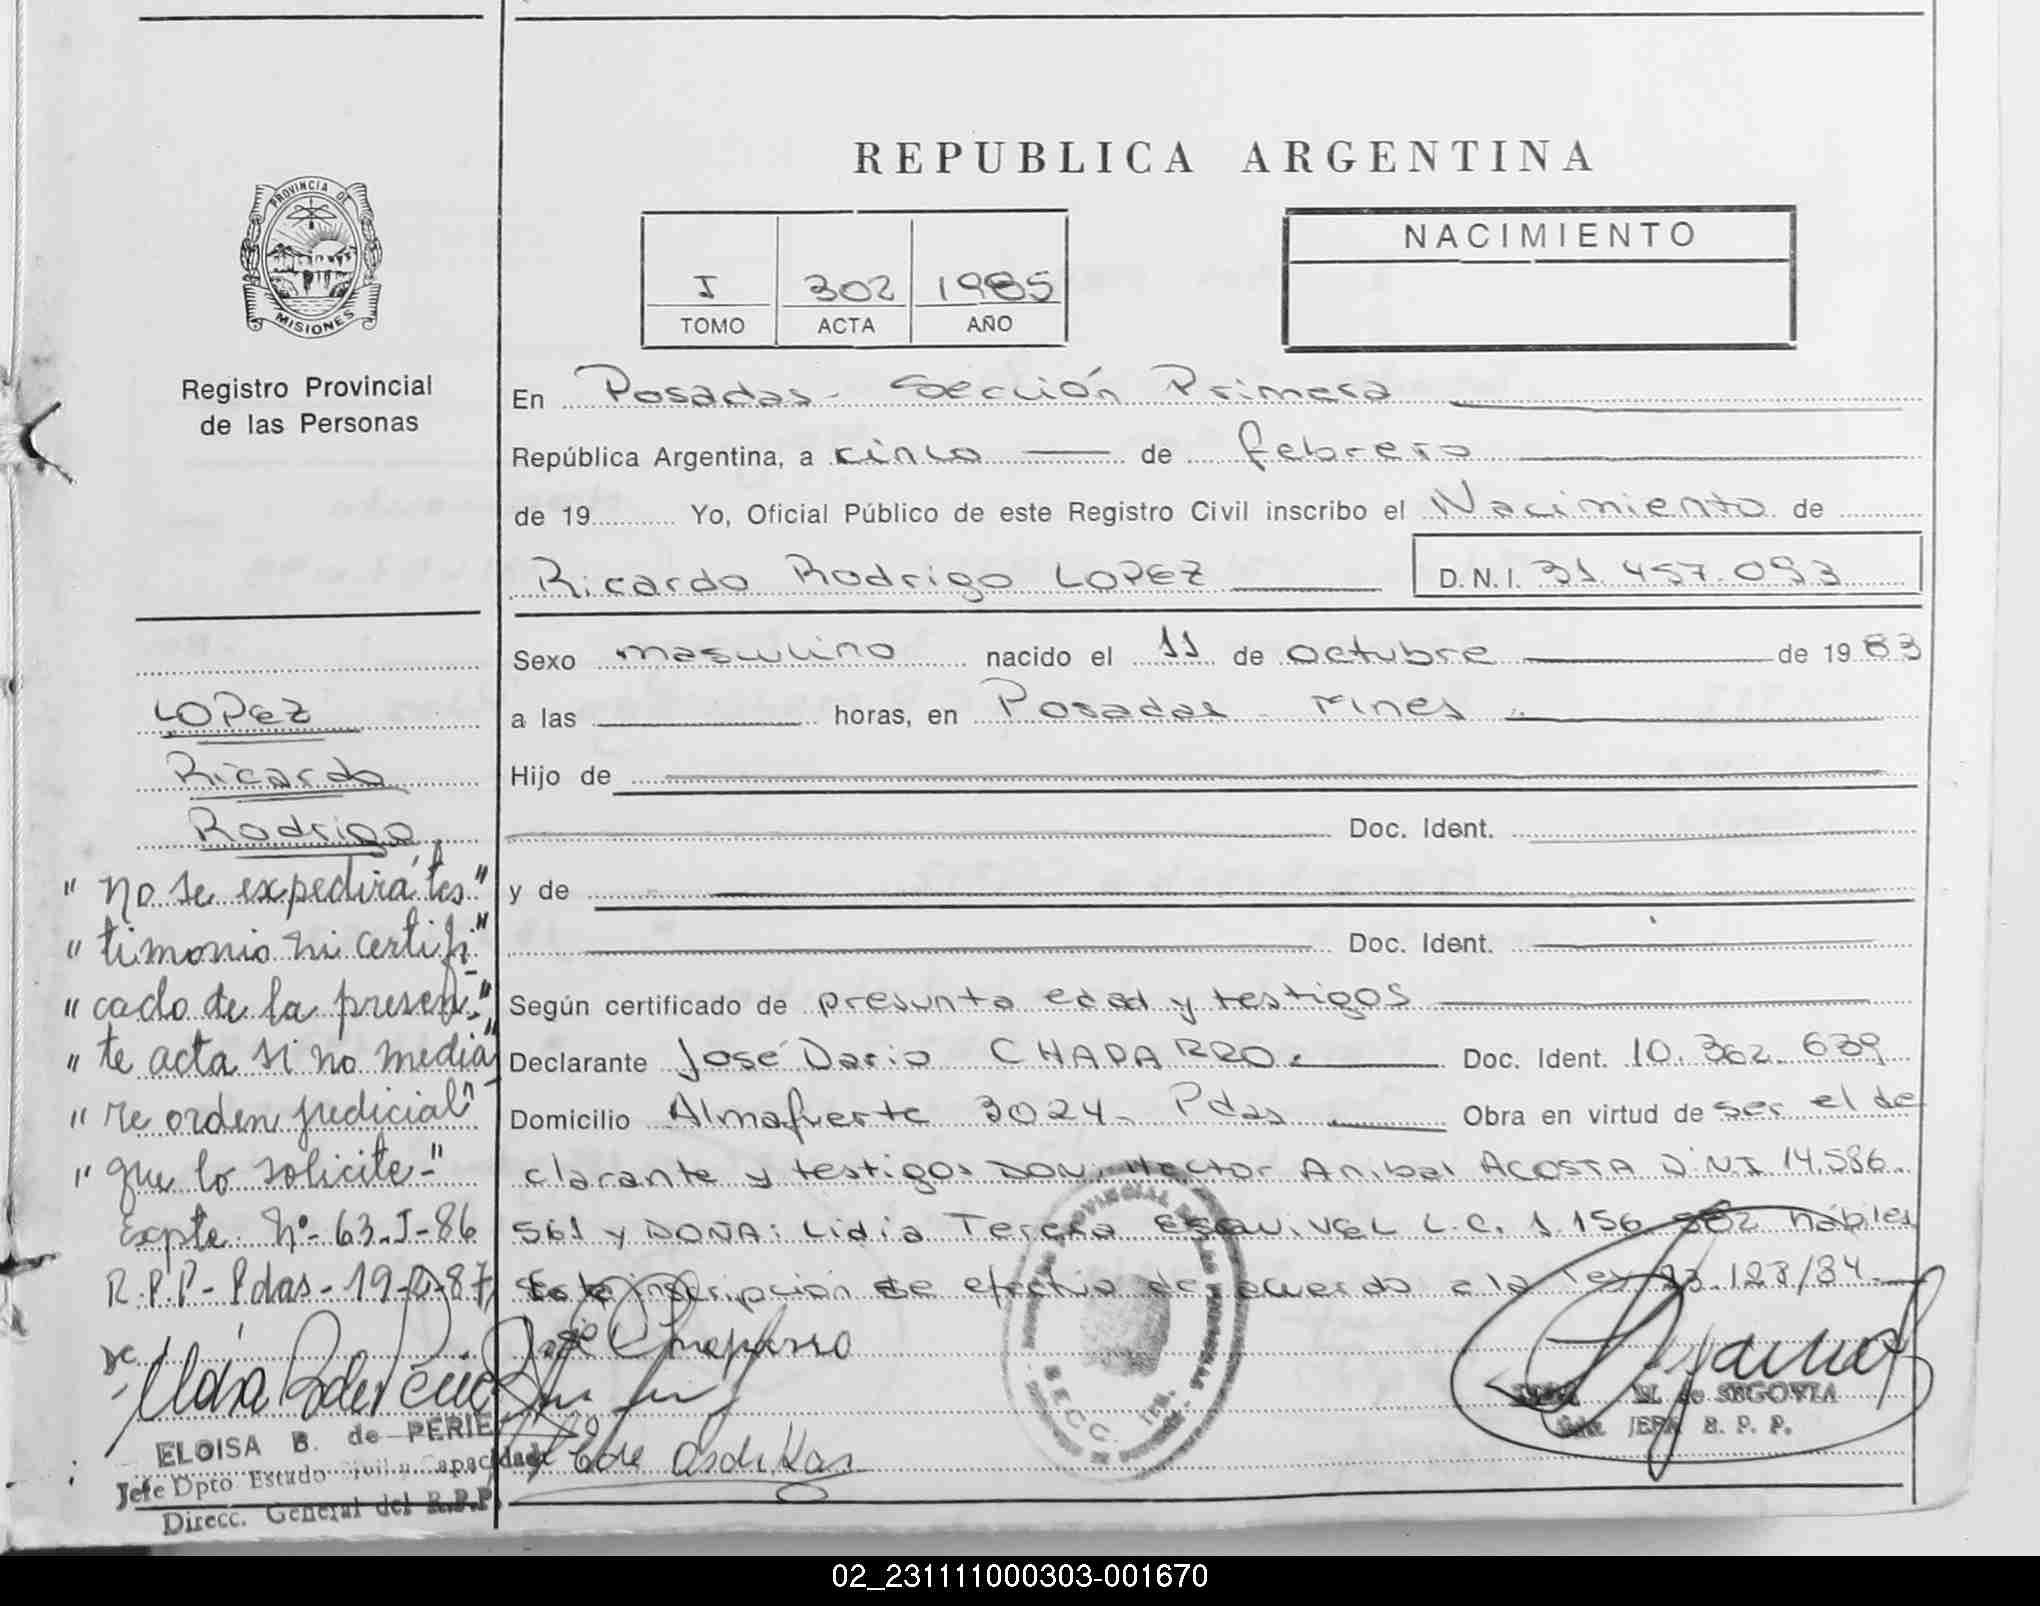 REPUBLICA ARGENTINA
PROVINCIA DE
MISIONES
Registro Provincial
de las Personas
I 302 1985
TOMO ACTA AÑO
NACIMIENTO
En Posadas - Sección Primera
República Argentina, a cinco de febrero
de 19 Yo, Oficial Público de este Registro Civil inscribo el Nacimiento de
Ricardo Rodrigo LOPEZ D.N.I. 31.457.093
Sexo masculino nacido el 11 de octubre de 1983
a las horas, en Posadas - Mnes
Hijo de
Doc. Ident.
y de
Doc. Ident.
Según certificado de presunta edad y testigos
Declarante José Dario CHAPARRO. Doc. Ident. 10.362.639
Domicilio Almafuerte 3024 - Pdas Obra en virtud de ser el de
clarante y testigos DON: Hector Anibal ACOSTA D.N.I 14.586.
561 y DOÑA: Lidia Teresa ESQUIVEL L.C. 1.156.582 hábiles
Esta inscripción se efectúa de acuerdo a la ley 23.128/84
José Chaparro
LOPEZ
Ricardo
Rodrigo
" No se expedirá tes "
" timonio ni certifi- "
" cado de la presen- "
" te acta si no media "
" re orden judicial "
" que lo solicite - "
Expte. Nº- 63-J-86
R.P.P - Pdas - 19- -87
ELOISA B. de PERIE
Jefe Dpto Estado Civil y Capacidad
Direcc. General del R.P.P.
SECC. 1ra.
M. de SEGOVIA
JEFA R. P. P.
02_231111000303-001670